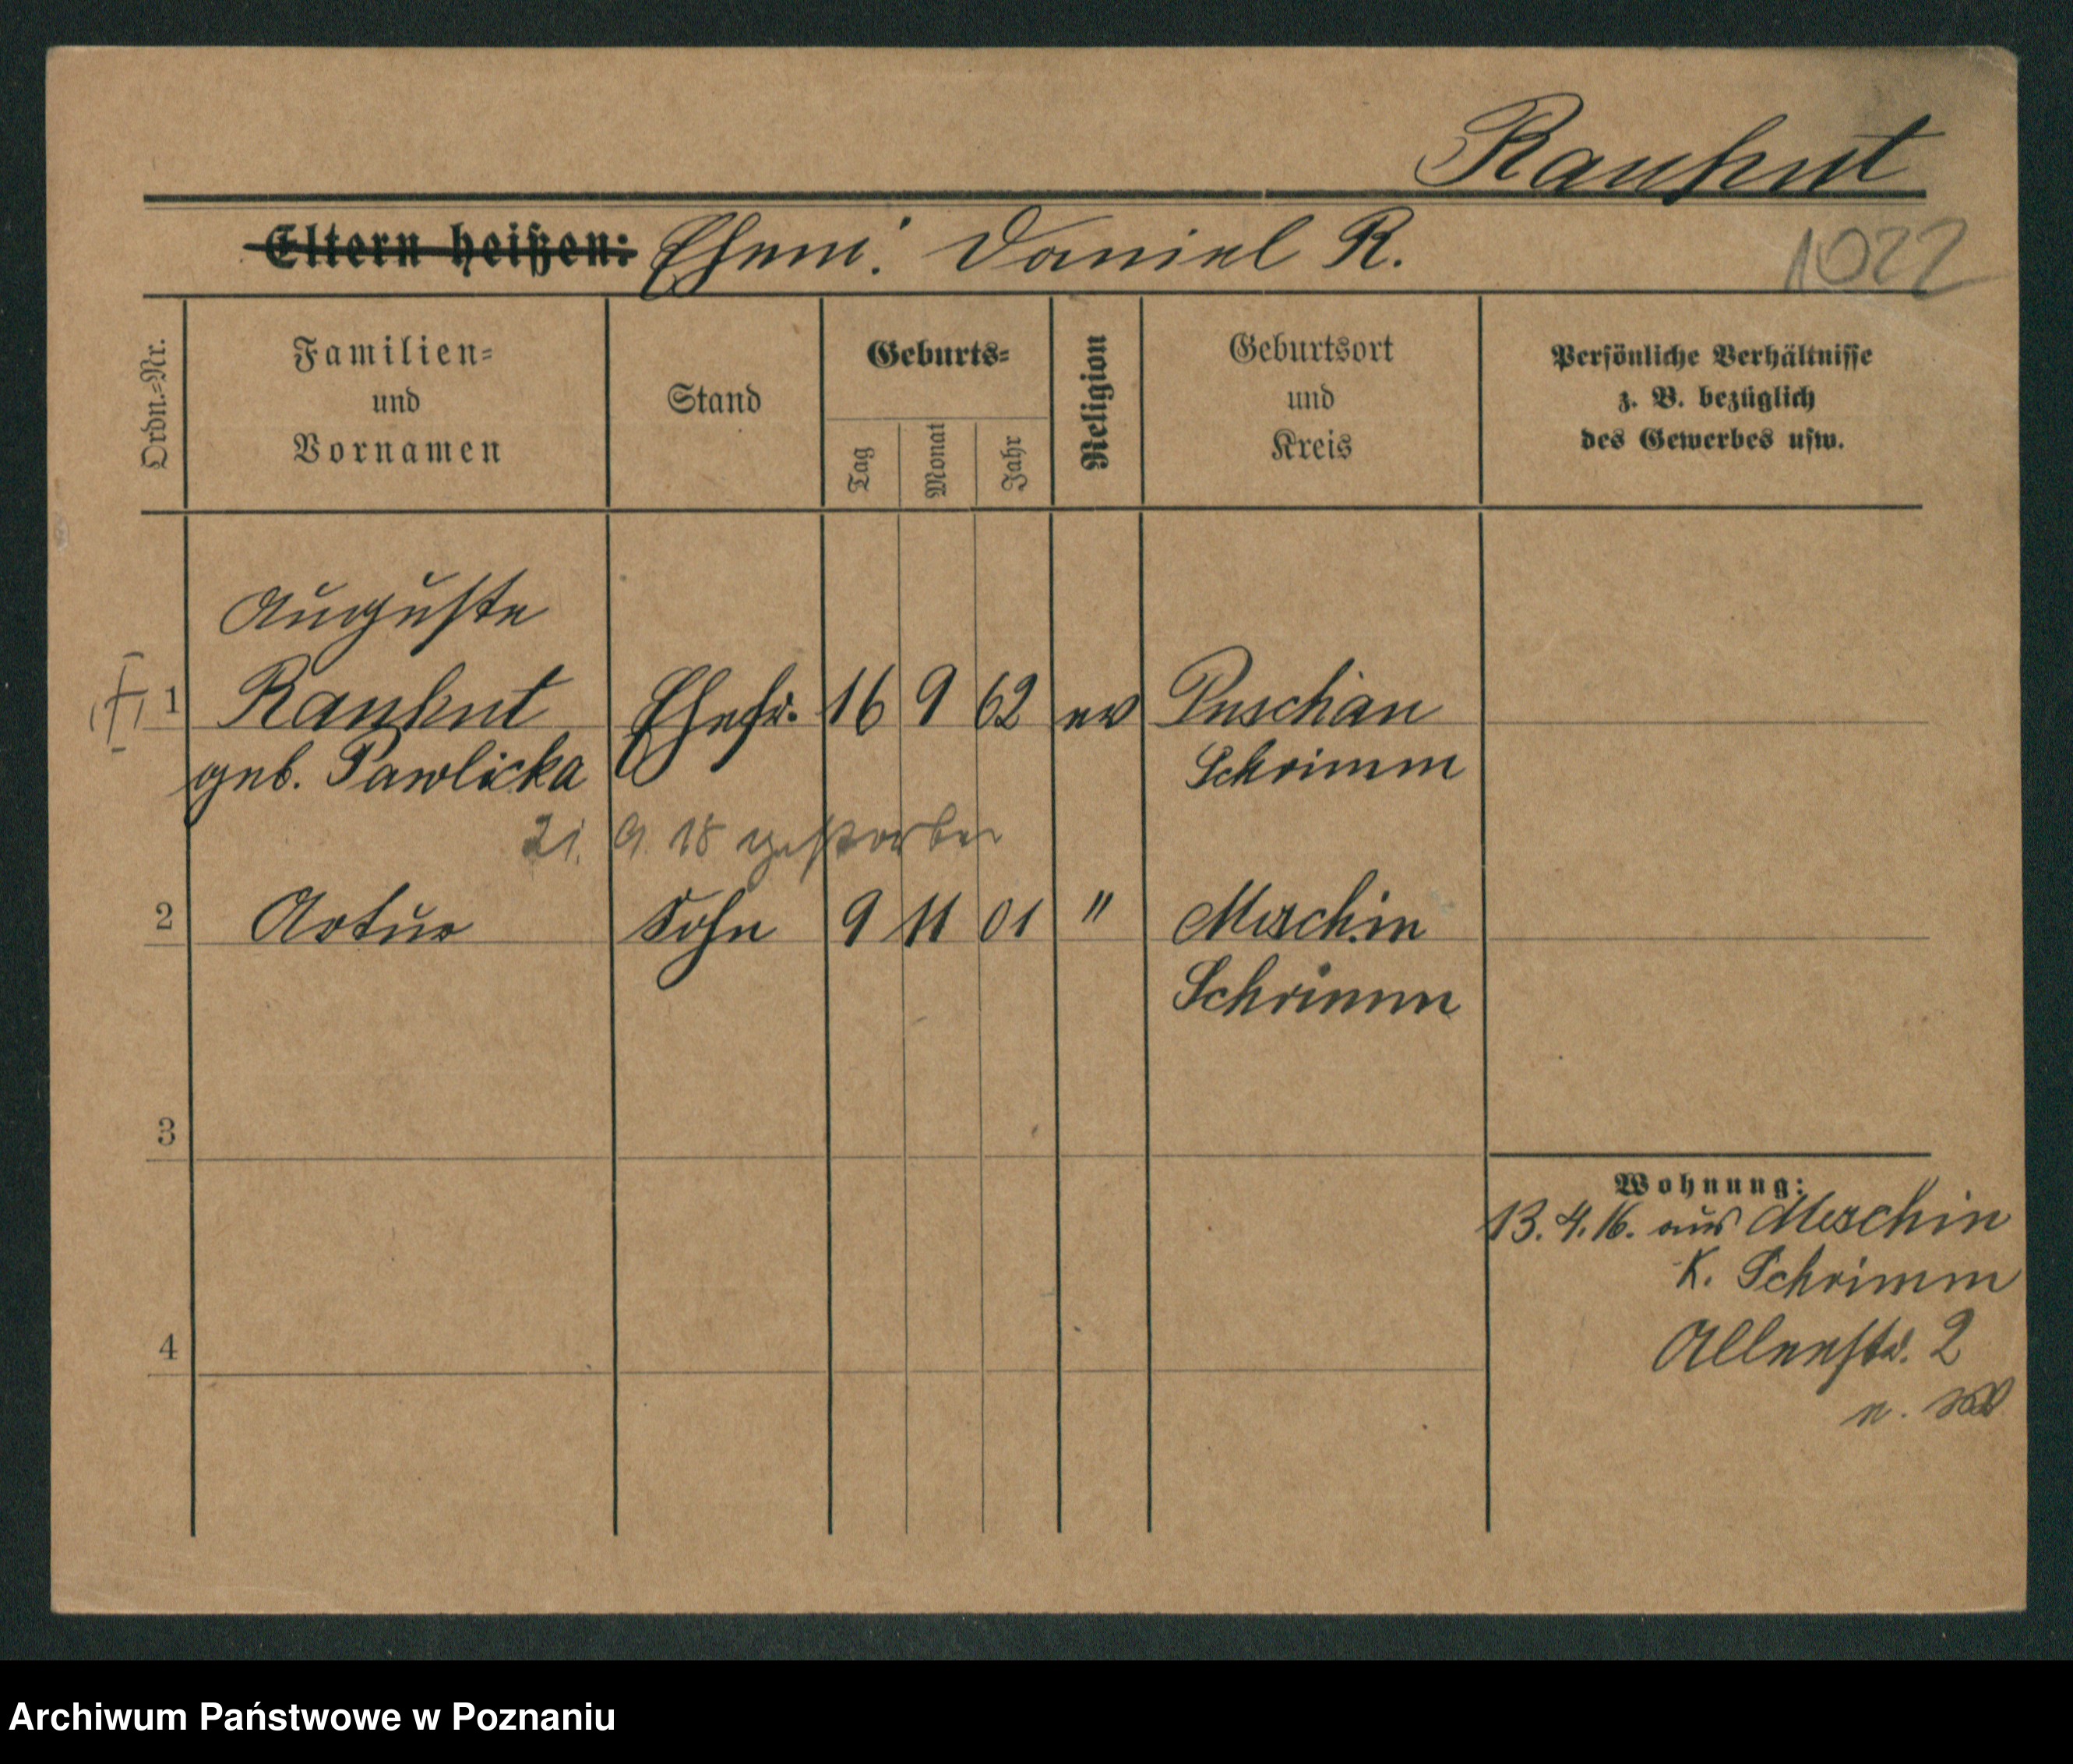 Rauhut
Eltern heißen: Ehem. Daniel R.
1022
Ordn.=Nr.
Familien=
und
Vornamen
Stand
Geburts=
Tag
Monat
Jahr
Religion
Geburtsort
und
Kreis
Persönliche Verhältnisse
z. B. bezüglich
des Gewerbes usw.
Auguste
1 Rauhut Ehefr. 16 9 62 ev Puschän
geb. Pawlicka Schrimm
21. 9. 18 gestorben
2 Artur Sohn 9 11 01 " Meschin
Schrimm
3
Wohnung:
13. 4. 16. aus Meschin
K. Schrimm
4
Alleestr. 2